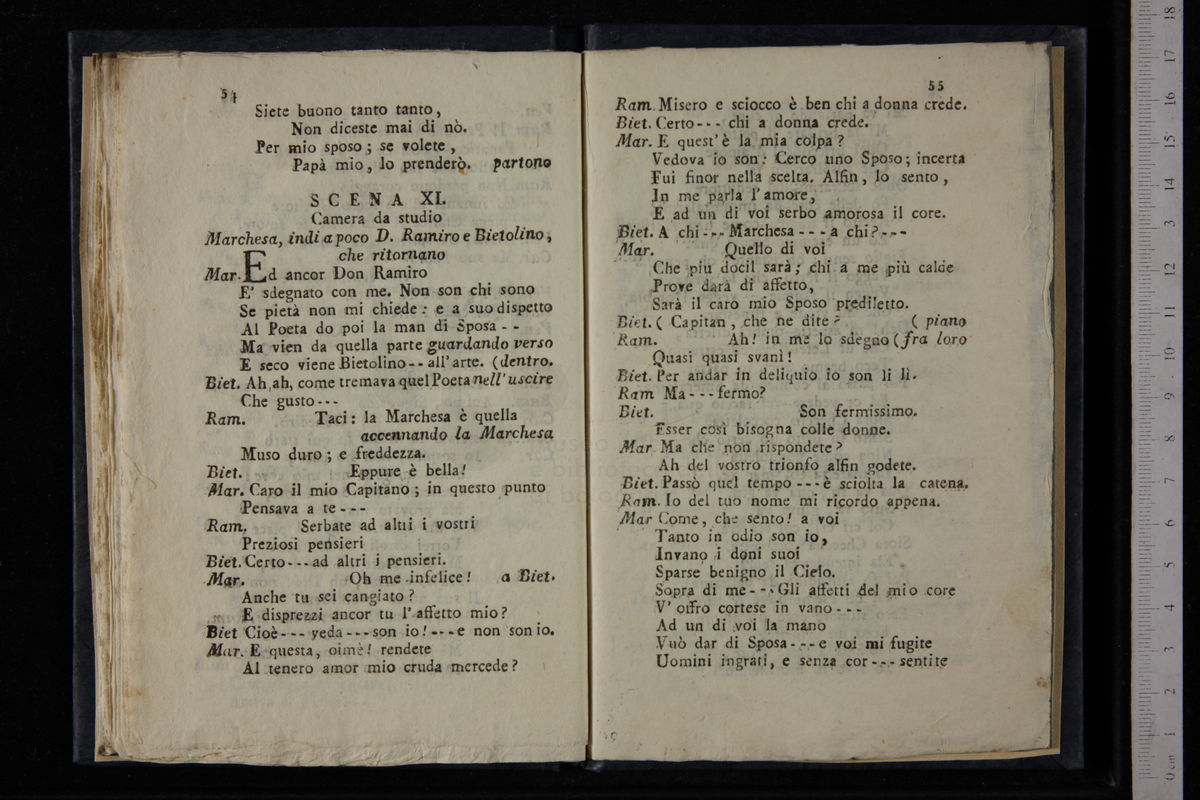 54
Siete buono tanto tanto,
Non diceste mai di nò.
Per mio sposo; se volete,
Papà mio, lo prenderò. partono
SCENA XI.
Camera da studio
Marchesa, indi a poco D. Ramiro e Bietolino,
che ritornano
Mar. Ed ancor Don Ramiro
E' sdegnato con me. Non son chi sono
Se pietà non mi chiede: e a suo dispetto
Al Poeta do poi la man di Sposa - -
Ma vien da quella parte guardando verso
E seco viene Bietolino - - all' arte. (dentro.
Biet. Ah, ah, come tremava quel Poeta nell' uscire
Che gusto - - -
Ram. Taci: la Marchesa è quella
accennando la Marchesa
Muso duro; e freddezza.
Biet. Eppure è bella!
Mar. Caro il mio Capitano; in questo punto
Pensava a te - - -
Ram. Serbate ad altri i vostri
Preziosi pensieri
Biet. Certo - - - ad altri i pensieri.
Mar. Oh me infelice! a Biet.
Anche tu sei cangiato?
E disprezzi ancor tu l' affetto mio?
Biet Cioè - - - veda - - - son io! - - - e non son io.
Mar. E questa, oimè! rendete
Al tenero amor mio cruda mercede?
55
Ram. Misero e sciocco è ben chi a donna crede.
Biet. Certo - - - chi a donna crede.
Mar. E quest' è la mia colpa?
Vedova io son: Cerco uno Sposo; incerta
Fui finor nella scelta. Alfin, lo sento,
In me parla l' amore,
E ad un di voi serbo amorosa il core.
Biet. A chi - - - Marchesa - - - a chi? - - -
Mar. Quello di voi
Che più docil sarà; chi a me più calde
Prove darà di affetto,
Sarà il caro mio Sposo prediletto.
Biet. ( Capitan, che ne dite? ( piano
Ram. Ah! in me lo sdegno (fra loro
Quasi quasi svanì!
Biet. Per andar in deliquio io son lì lì.
Ram Ma - - - fermo?
Biet. Son fermissimo.
Esser così bisogna colle donne.
Mar Ma che non rispondete?
Ah del vostro trionfo alfin godete.
Biet. Passò quel tempo - - - è sciolta la catena.
Ram. Io del tuo nome mi ricordo appena.
Mar Come, che sento! a voi
Tanto in odio son io,
Invano i doni suoi
Sparse benigno il Cielo.
Sopra di me - - - Gli affetti del mio core
V' offro cortese in vano - - -
Ad un di voi la mano
Vuò dar di Sposa - - - e voi mi fugite
Uomini ingrati, e senza cor - - - sentite
0 cm 1 2 3 4 5 6 7 8 9 10 11 12 13 14 15 16 17 18